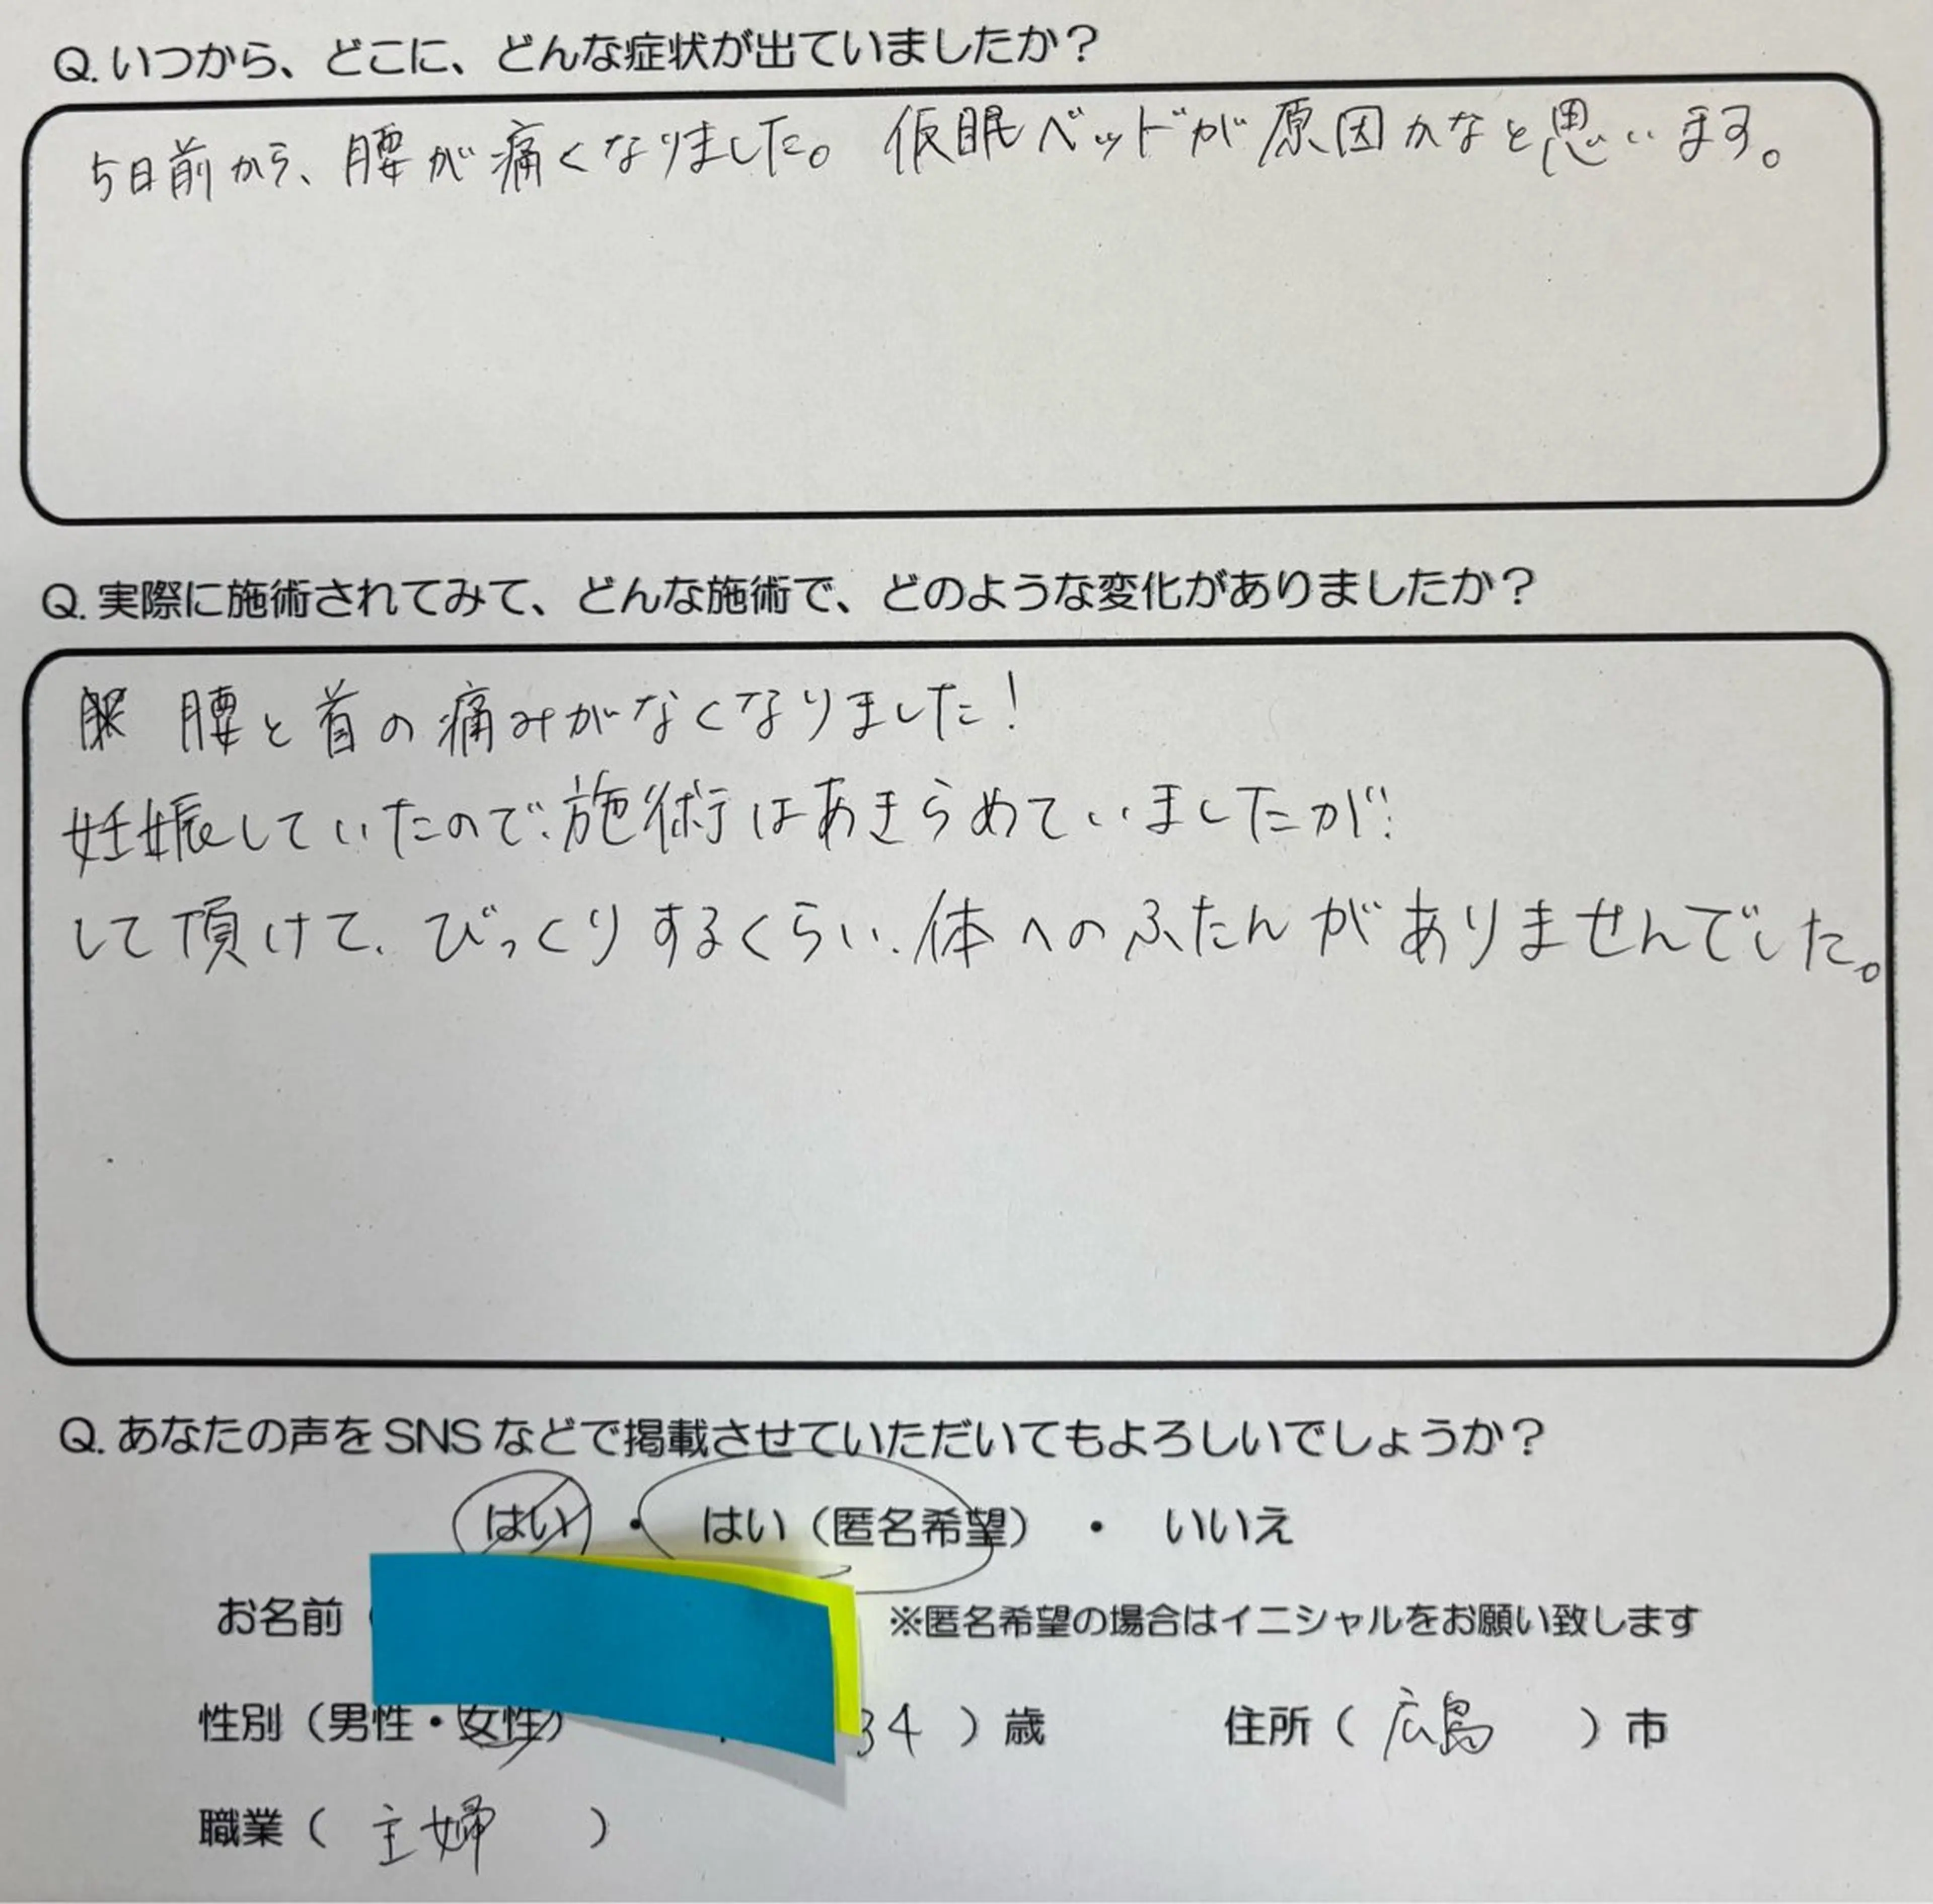 Q. いつから、どこに、どんな症状が出ていましたか？
5日前から、腰が痛くなりました。仮眠ベッドが原因かなと思います。
Q. 実際に施術されてみて、どんな施術で、どのような変化がありましたか？
腰と首の痛みがなくなりました！
妊娠していたので、施術はあきらめていましたが、
して頂けて、びっくりするくらい、体へのふたんがありませんでした。
Q. あなたの声をSNSなどで掲載させていただいてもよろしいでしょうか？
はい ・ はい（匿名希望） ・ いいえ
お名前（ ※匿名希望の場合はイニシャルをお願い致します
性別（男性・女性） 34 ）歳 住所（ 広島 ）市
職業（ 主婦 ）